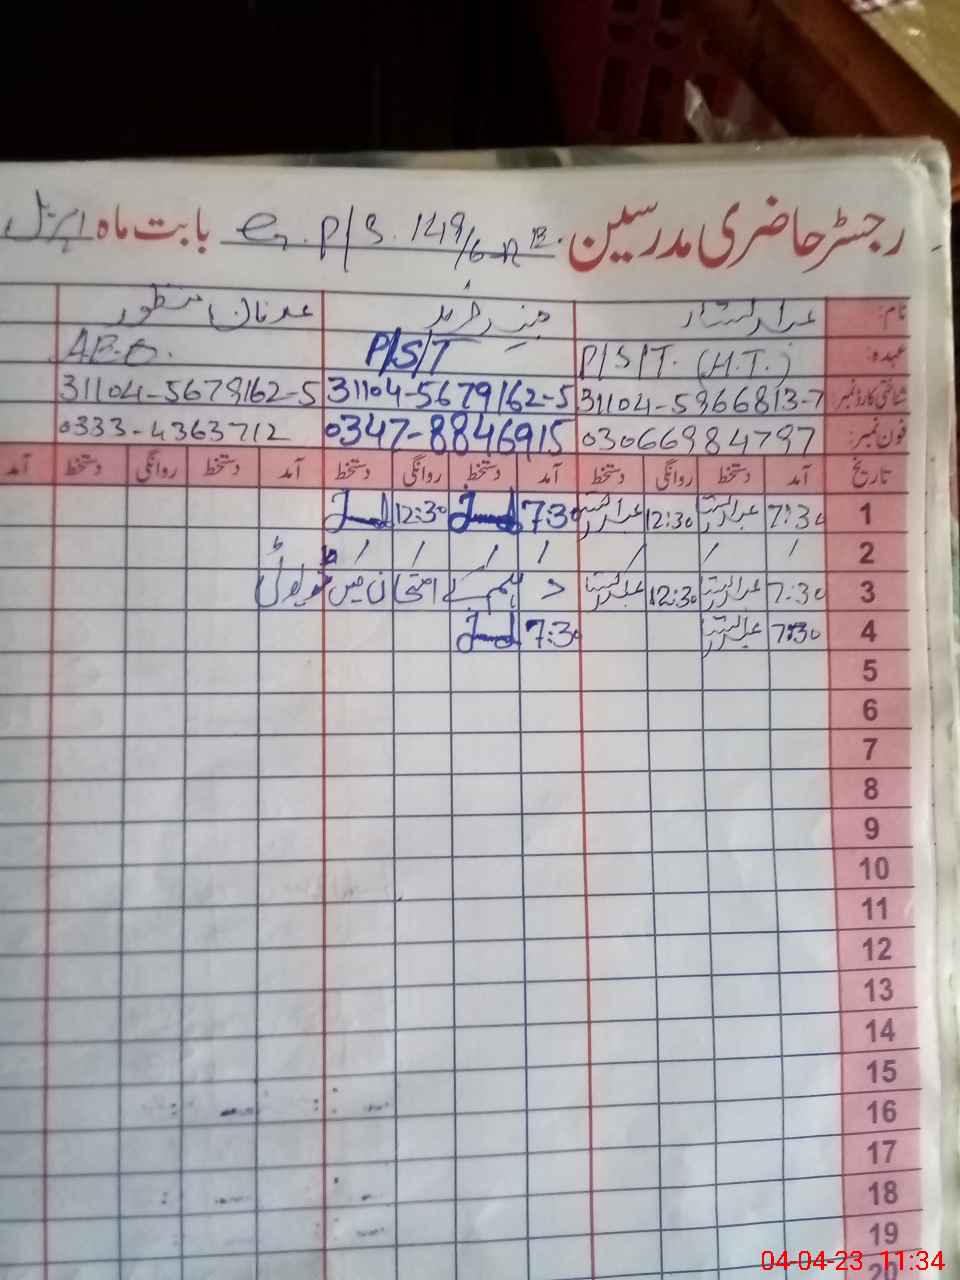 رجسٹر حاضری مدرسین G. P/S. 148/6-R بابت ماہ اپریل
نام: عبدالستار جنید خرم عدنان منظور
عہدہ: P/S/T. (H.T.) P/S/T A.E.O.
شناختی کارڈ نمبر 31104-5966813-7 31104-5679162-5 31104-5679162-5
فون نمبر: 03066984797 0347-8846915 0333-4363712
تاریخ آمد دستخط روانگی دستخط آمد دستخط روانگی دستخط آمد دستخط روانگی دستخط آمد
1 7:30 عبدالستار 12:30 عبدالستار 7:30 12:30
2 / / / / / / /
3 7:30 عبدالستار 12:30 عبدالستار امتحان میں ڈیوٹی
4 7:30 عبدالستار 7:30
5
6
7
8
9
10
11
12
13
14
15
16
17
18
19
20
04-04-23 11:34